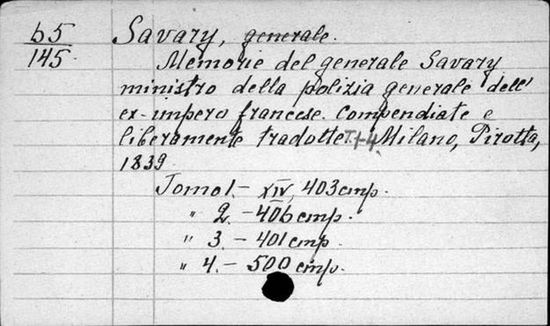 b5
145.
Savary, generale.
Memorie del generale Savary
ministro della polizia generale dell'
ex-impero francese. Compendiate e
liberamente tradotte. T.1-4. Milano, Pirotta,
1839.
Tomo 1.- XIV, 403 стр.
" 2.- 406 стр.
" 3.- 401 стр.
" 4.- 500 стр.